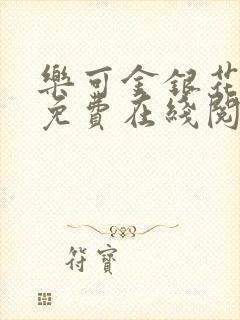 樂可金銀花
免費在綫閱
符寶